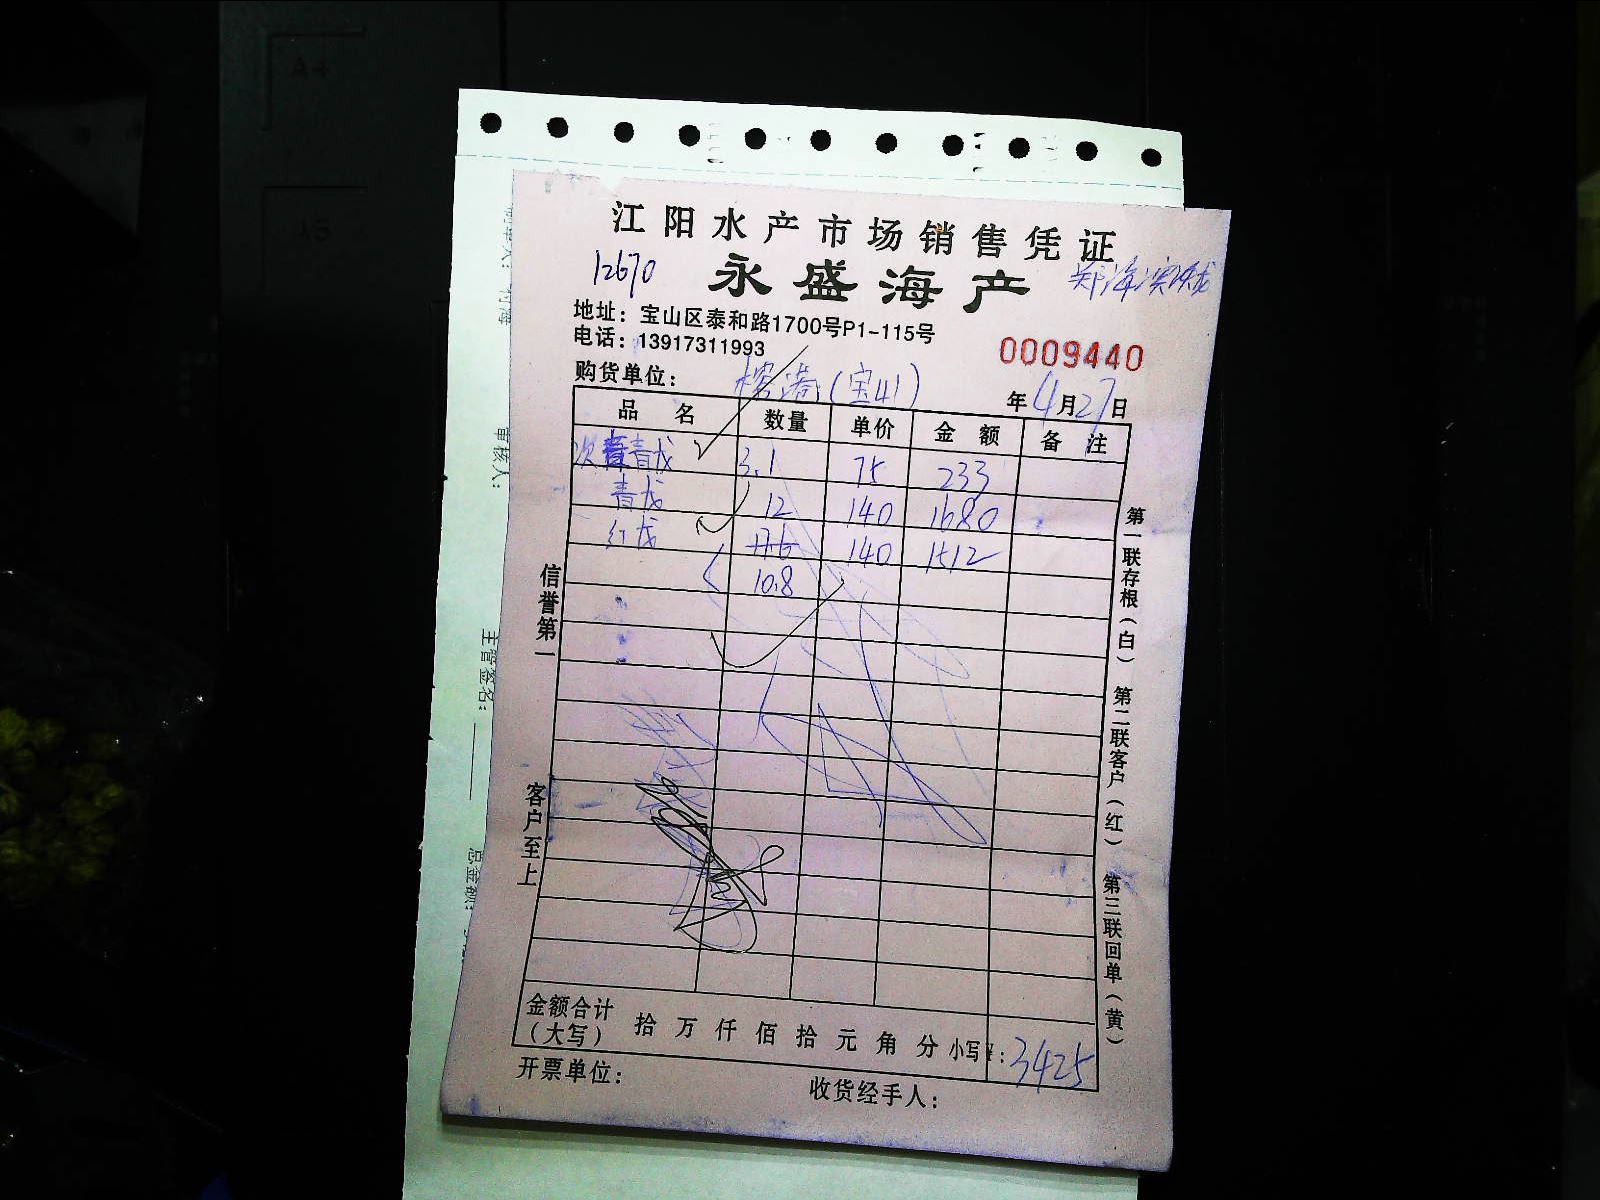 江阳水产市场销售凭证
12670
永盛海产
地址：宝山区泰和路1700号P1-115号
电话：13917311993
0009440
购货单位： (宝山)
年4月27日
品名 数量 单价 金额 备注
青戊 3.1 75 233
青戊 12 140 1680
红戊 140 1512
10.8
信誉第一
客户至上
第一联存根（白） 第二联客户（红） 第三联回单（黄）
金额合计（大写） 拾 万 仟 佰 拾 元 角 分 小写¥：3425
开票单位：
收货经手人：
审核人：
主管签名：
总金额：
A4
A5